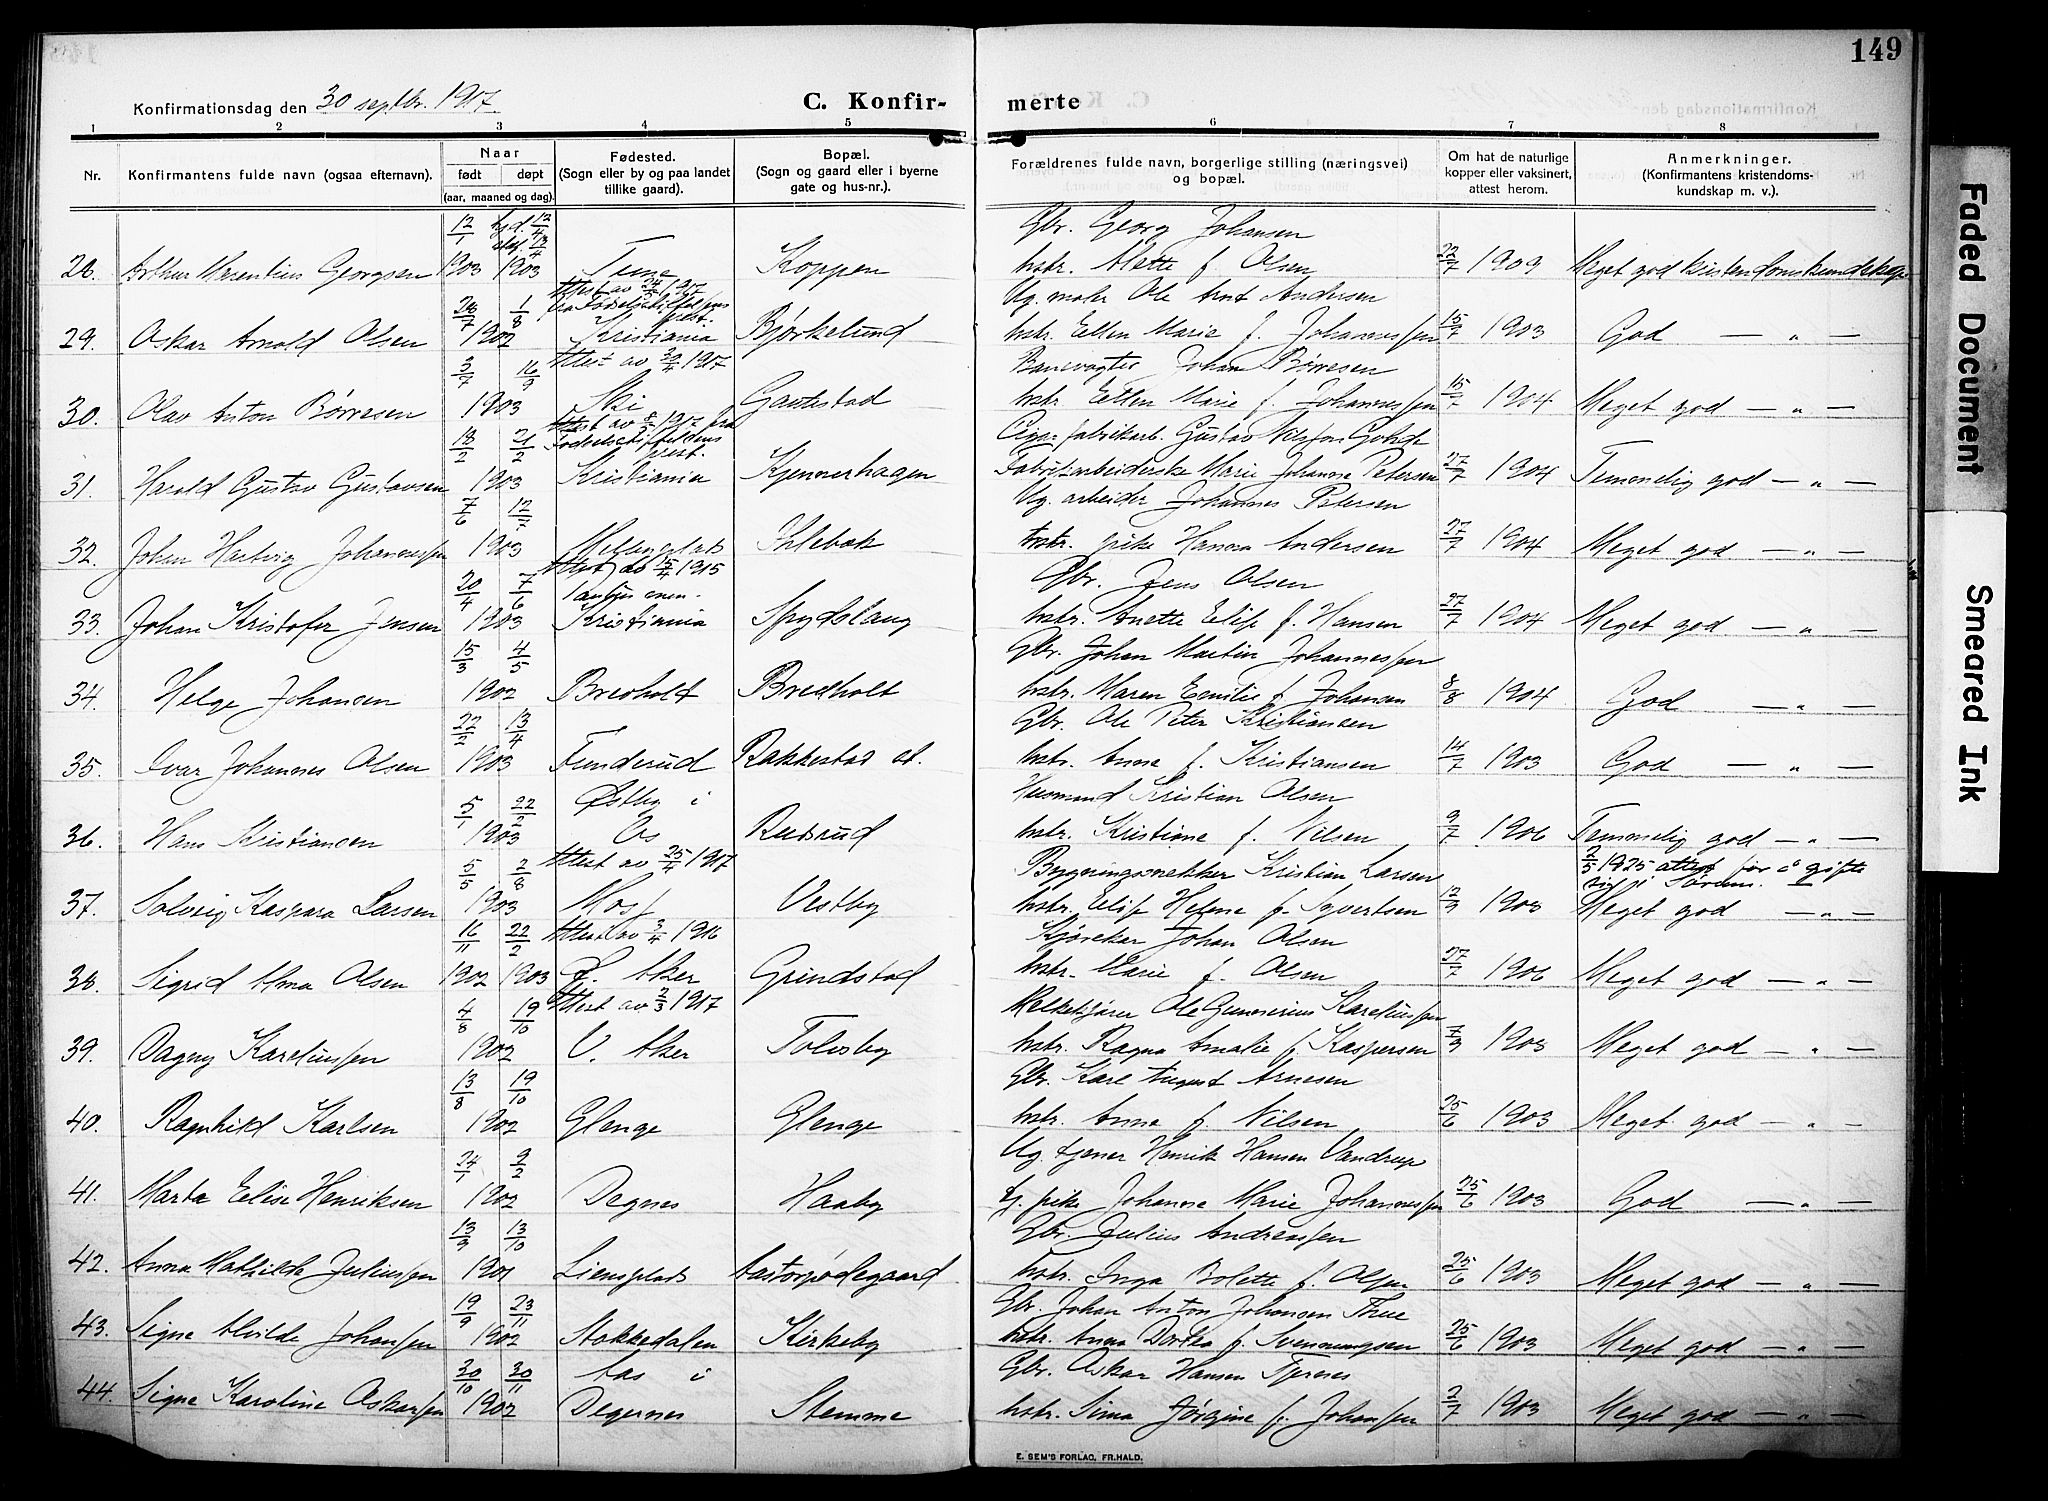 149
Konfirmationsdag den 30 septbr. 1917
C. Konfirmerte
1 2 3 4 5 6 7 8
Nr. Konfirmantens fulde navn (ogsaa efternavn). Naar født døpt (aar, maaned og dag). Fødested. (Sogn eller by og paa landet tillike gaard). Bopæl. (Sogn og gaard eller i byerne gate og hus-nr.). Forældrenes fulde navn, borgerlige stilling (næringsvei) og bopæl. Om hat de naturlige kopper eller vaksinert, attest herom. Anmerkninger. (Konfirmantens kristendomskundskap m. v.).
12/1 hj.d. 12/4 Gbr. Georg Johansen
28. Arthur Marentius Georgsen 1903 1903 Tene Koppen hstr. Alette f. Olsen 22/7 1909 Meget god kristendomskundskap
Attest av 24/4 1917 fra Fødselsstiftelsens prest.
28/7 1/8 Ug. maler Ole Arnt Andersen
29. Oskar Arnold Olsen 1902 Kristiania Bjørkelund hstr. Ellen Marie f. Johannessen 15/7 1903 God — „ —
Attest av 30/4 1917
3/7 16/9 Banevogter Johan Børresen
30. Olav Anton Børresen 1903 Ski Gautestad hstr. Ellen Marie f. Johannessen 15/7 1904 Meget god — „ —
Attest av 8/5 1917 fra Fødselsstiftelsens prest.
18/2 21/2 Cigarfabrikarb. Gustav Nilsson Gohde
31. Harald Gustav Gustavsen 1903 Kristiania Kjennerhagen Fabrikarbeiderske Marie Johanne Petersen 27/7 1904 Temmelig god — „ —
7/6 12/7 Ug. arbeider Johannes Petersen
32. Johan Hartvig Johannessen 1903 Melbyeplads Ihlebak hstr. pike Hanna Andersen 27/7 1904 Meget god — „ —
Attest av 15/4 1915
20/4 7/6 Gbr. Jens Olsen
33. Johan Kristofer Jensen 1903 Kristiania Spydslaug hstr. Anette Elise f. Hansen 27/7 1904 Meget god — „ —
15/3 4/5 Gbr. Johan Martin Johannessen
34. Helge Johansen 1902 Bredholt Bredholt hstr. Maren Emilie f. Johansen 8/8 1904 God — „ —
22/2 13/4 Gbr. Ole Peter Kristiansen
35. Ivar Johannes Olsen 1903 Funderud Rakkestad st. hstr. Anna f. Kristiansen 14/7 1903 God — „ —
5/1 22/2 Østby i Husmand Kristian Olsen
36. Hans Kristiansen 1903 Os Rudsrud hstr. Kristiane f. Nilsen 9/7 1906 Temmelig god — „ —
Attest av 25/4 1917 2/5 1925 attest for å gifte sig i Sørum.
5/5 2/8 Bygningssnekker Kristian Larsen
37. Solveig Kaspara Larsen 1903 Moss Vestby hstr. Elise Helene f. Syvertsen 12/9 1903 Meget god — „ —
Attest av 3/4 1916
16/11 22/2 Kjørekar Johan Olsen
38. Sigrid Alma Olsen 1902 1903 Ø. Aker Grindstad hstr. Marie f. Olsen 27/7 1906 Meget god — „ —
Attest av 2/3 1917
4/8 19/10 Melkekjører Ole Gunerius Kareliussen
39. Dagny Kareliussen 1902 V. Aker Tolesby hstr. Ragna Amalie f. Kaspersen 7/9 1903 Meget god — „ —
13/8 19/10 Gbr. Karl August Arnesen
40. Ragnhild Karlsen 1902 Glenge Glenge hstr. Anna f. Nilsen 25/6 1903 Meget god — „ —
24/1 9/2 Ug. tjener Henrik Hansen Vandrup
41. Marta Elise Henriksen 1902 Degnes Haaby tj. pike Johanne Marie Johannessen 25/6 1903 God — „ —
13/9 13/10 Gbr. Julius Andreassen
42. Anna Mathilde Juliussen 1901 Liensplads Aastorpødegaard hstr. Inga Bolette f. Olsen 25/6 1903 Meget god — „ —
19/9 23/11 Gbr. Johan Anton Johansen Thue
43. Signe Alvilde Johansen 1902 Stokkedalen Kirkeby hstr. Anna Dortea f. Svenningsen 25/6 1903 Meget god — „ —
30/10 30/11 Aas i Gbr. Oskar Hansen Tjernes
44. Signe Karoline Oskarssen 1902 Degernes Stemme hstr. Sina Jørgine f. Johansen 2/7 1903 Meget god — „ —
E. SEM'S FORLAG, FR.HALD.
Faded Document
Smeared Ink